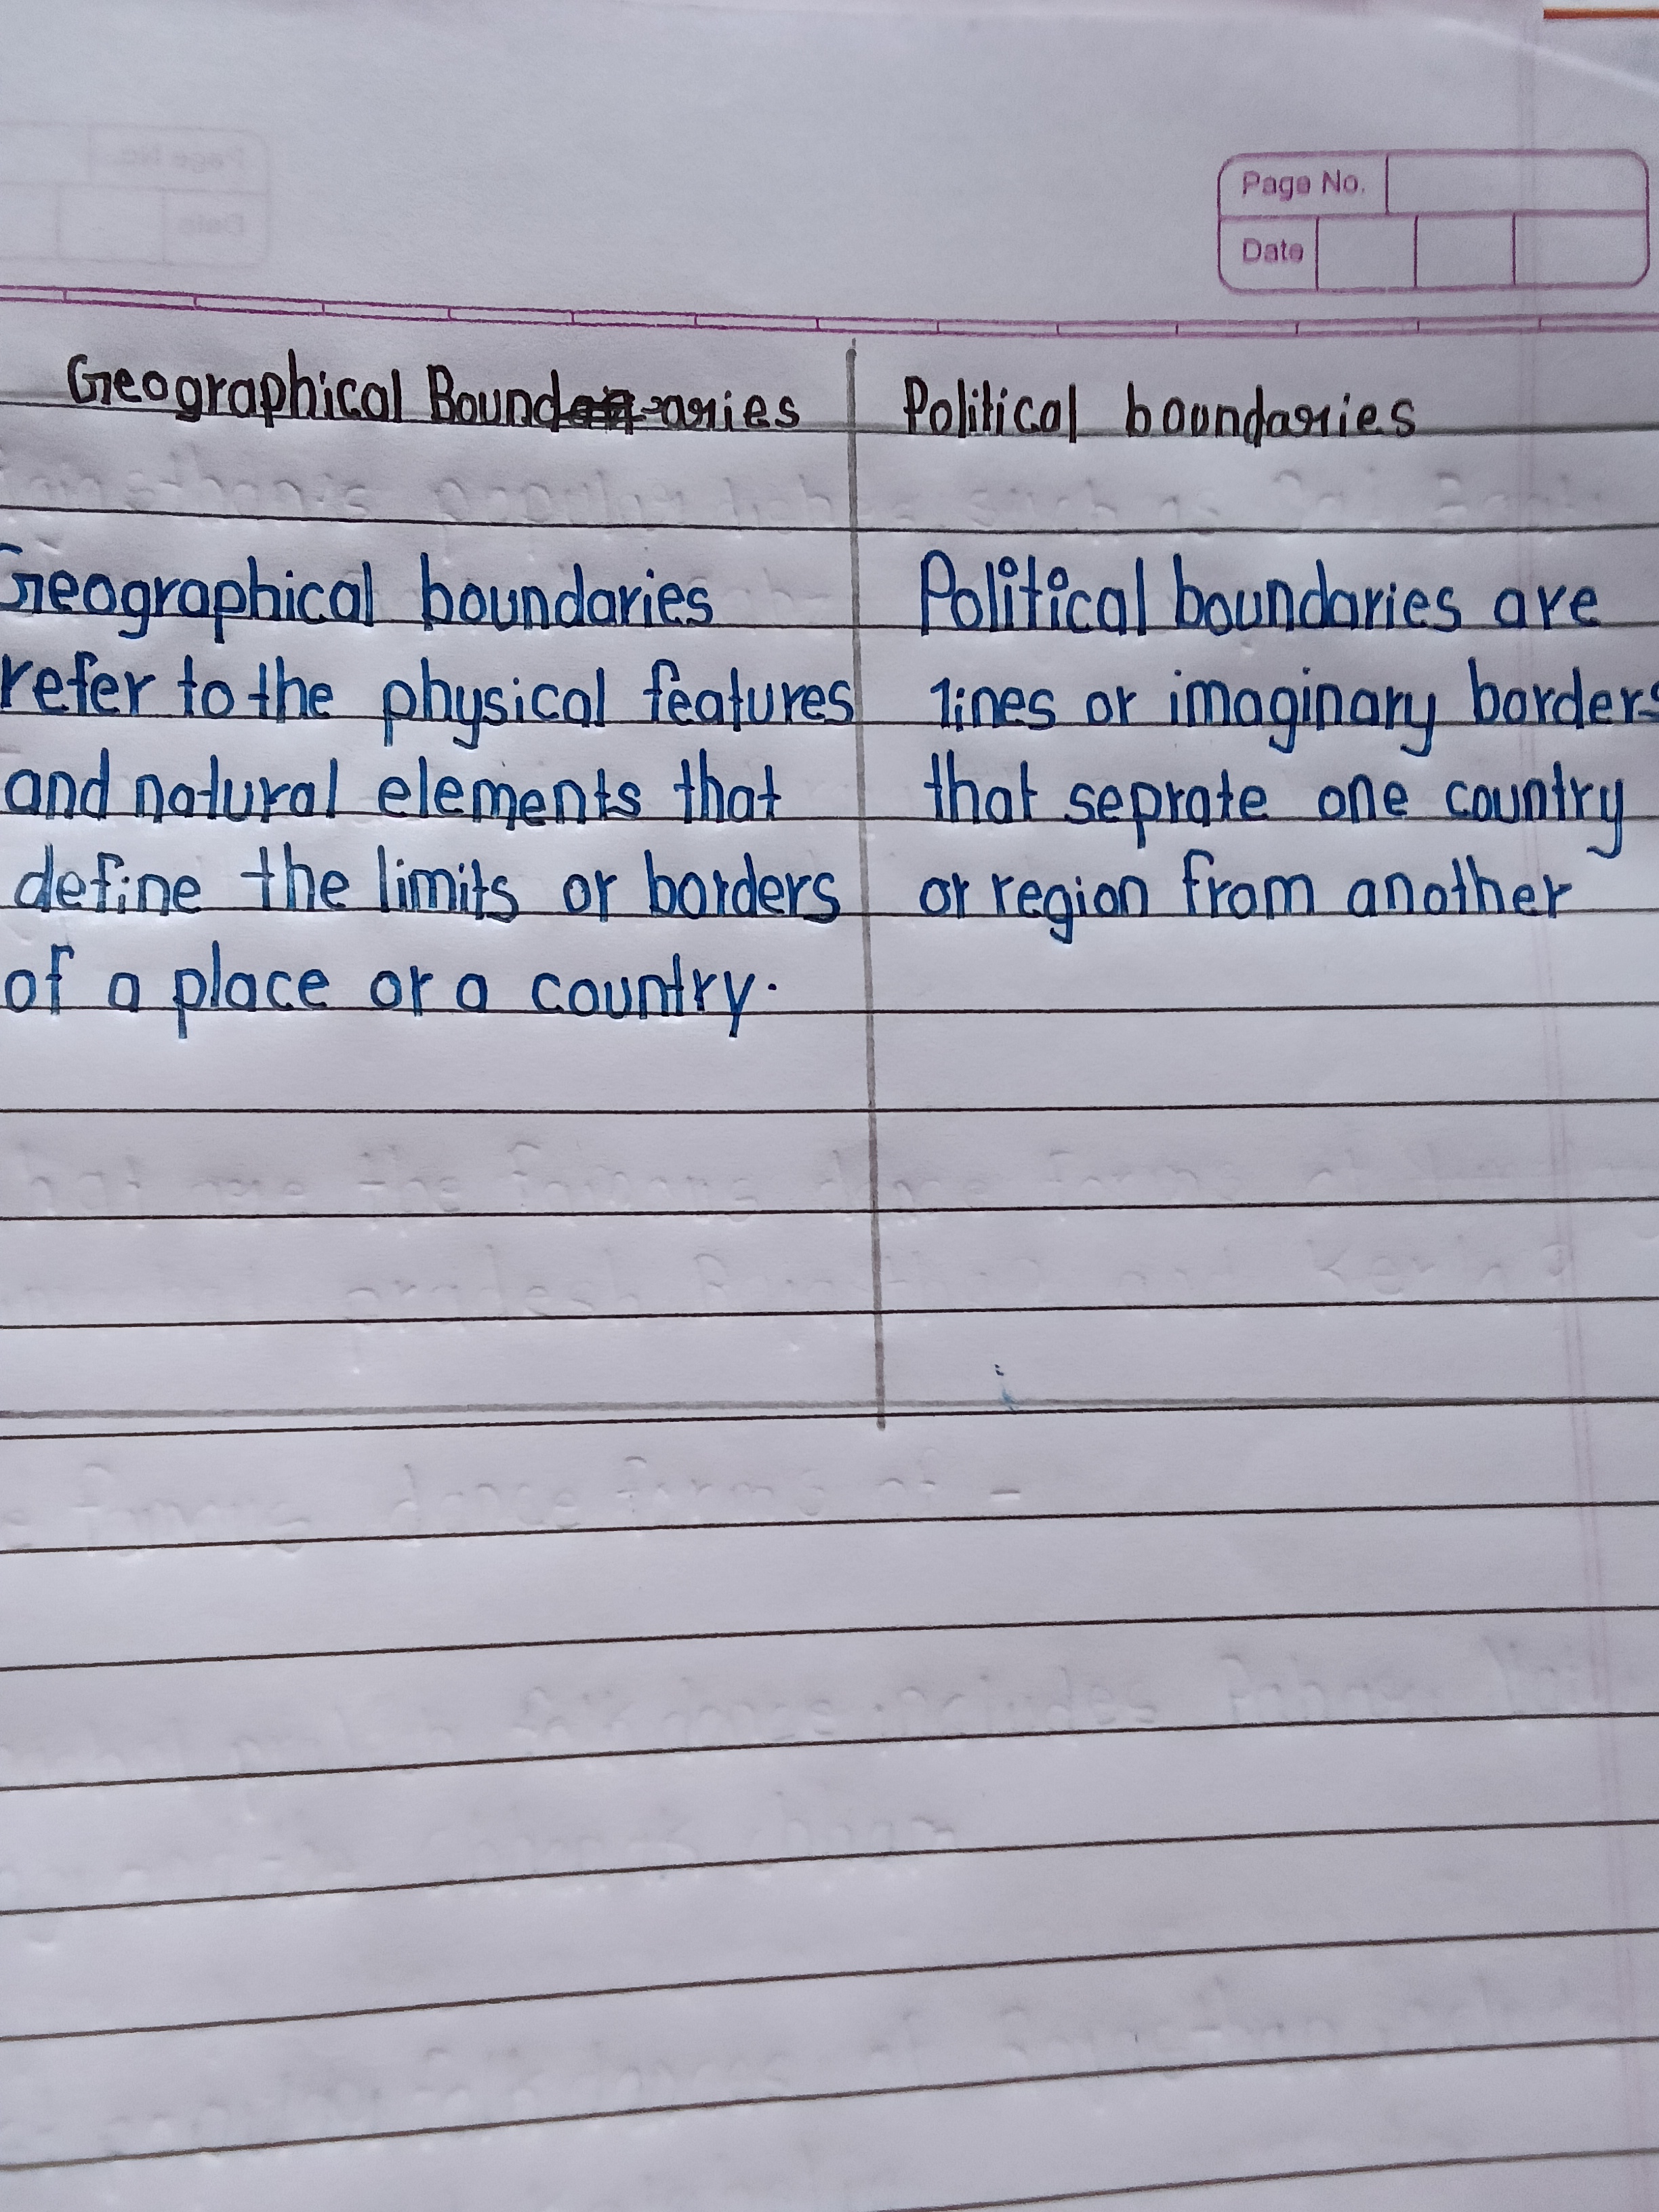 Page No.
Date
Geographical Boundaries
Political boundaries
Geographical boundaries
refer to the physical features
and natural elements that
define the limits or borders
of a place or a country.
Political boundaries are
lines or imaginary borders
that seprate one country
or region from another